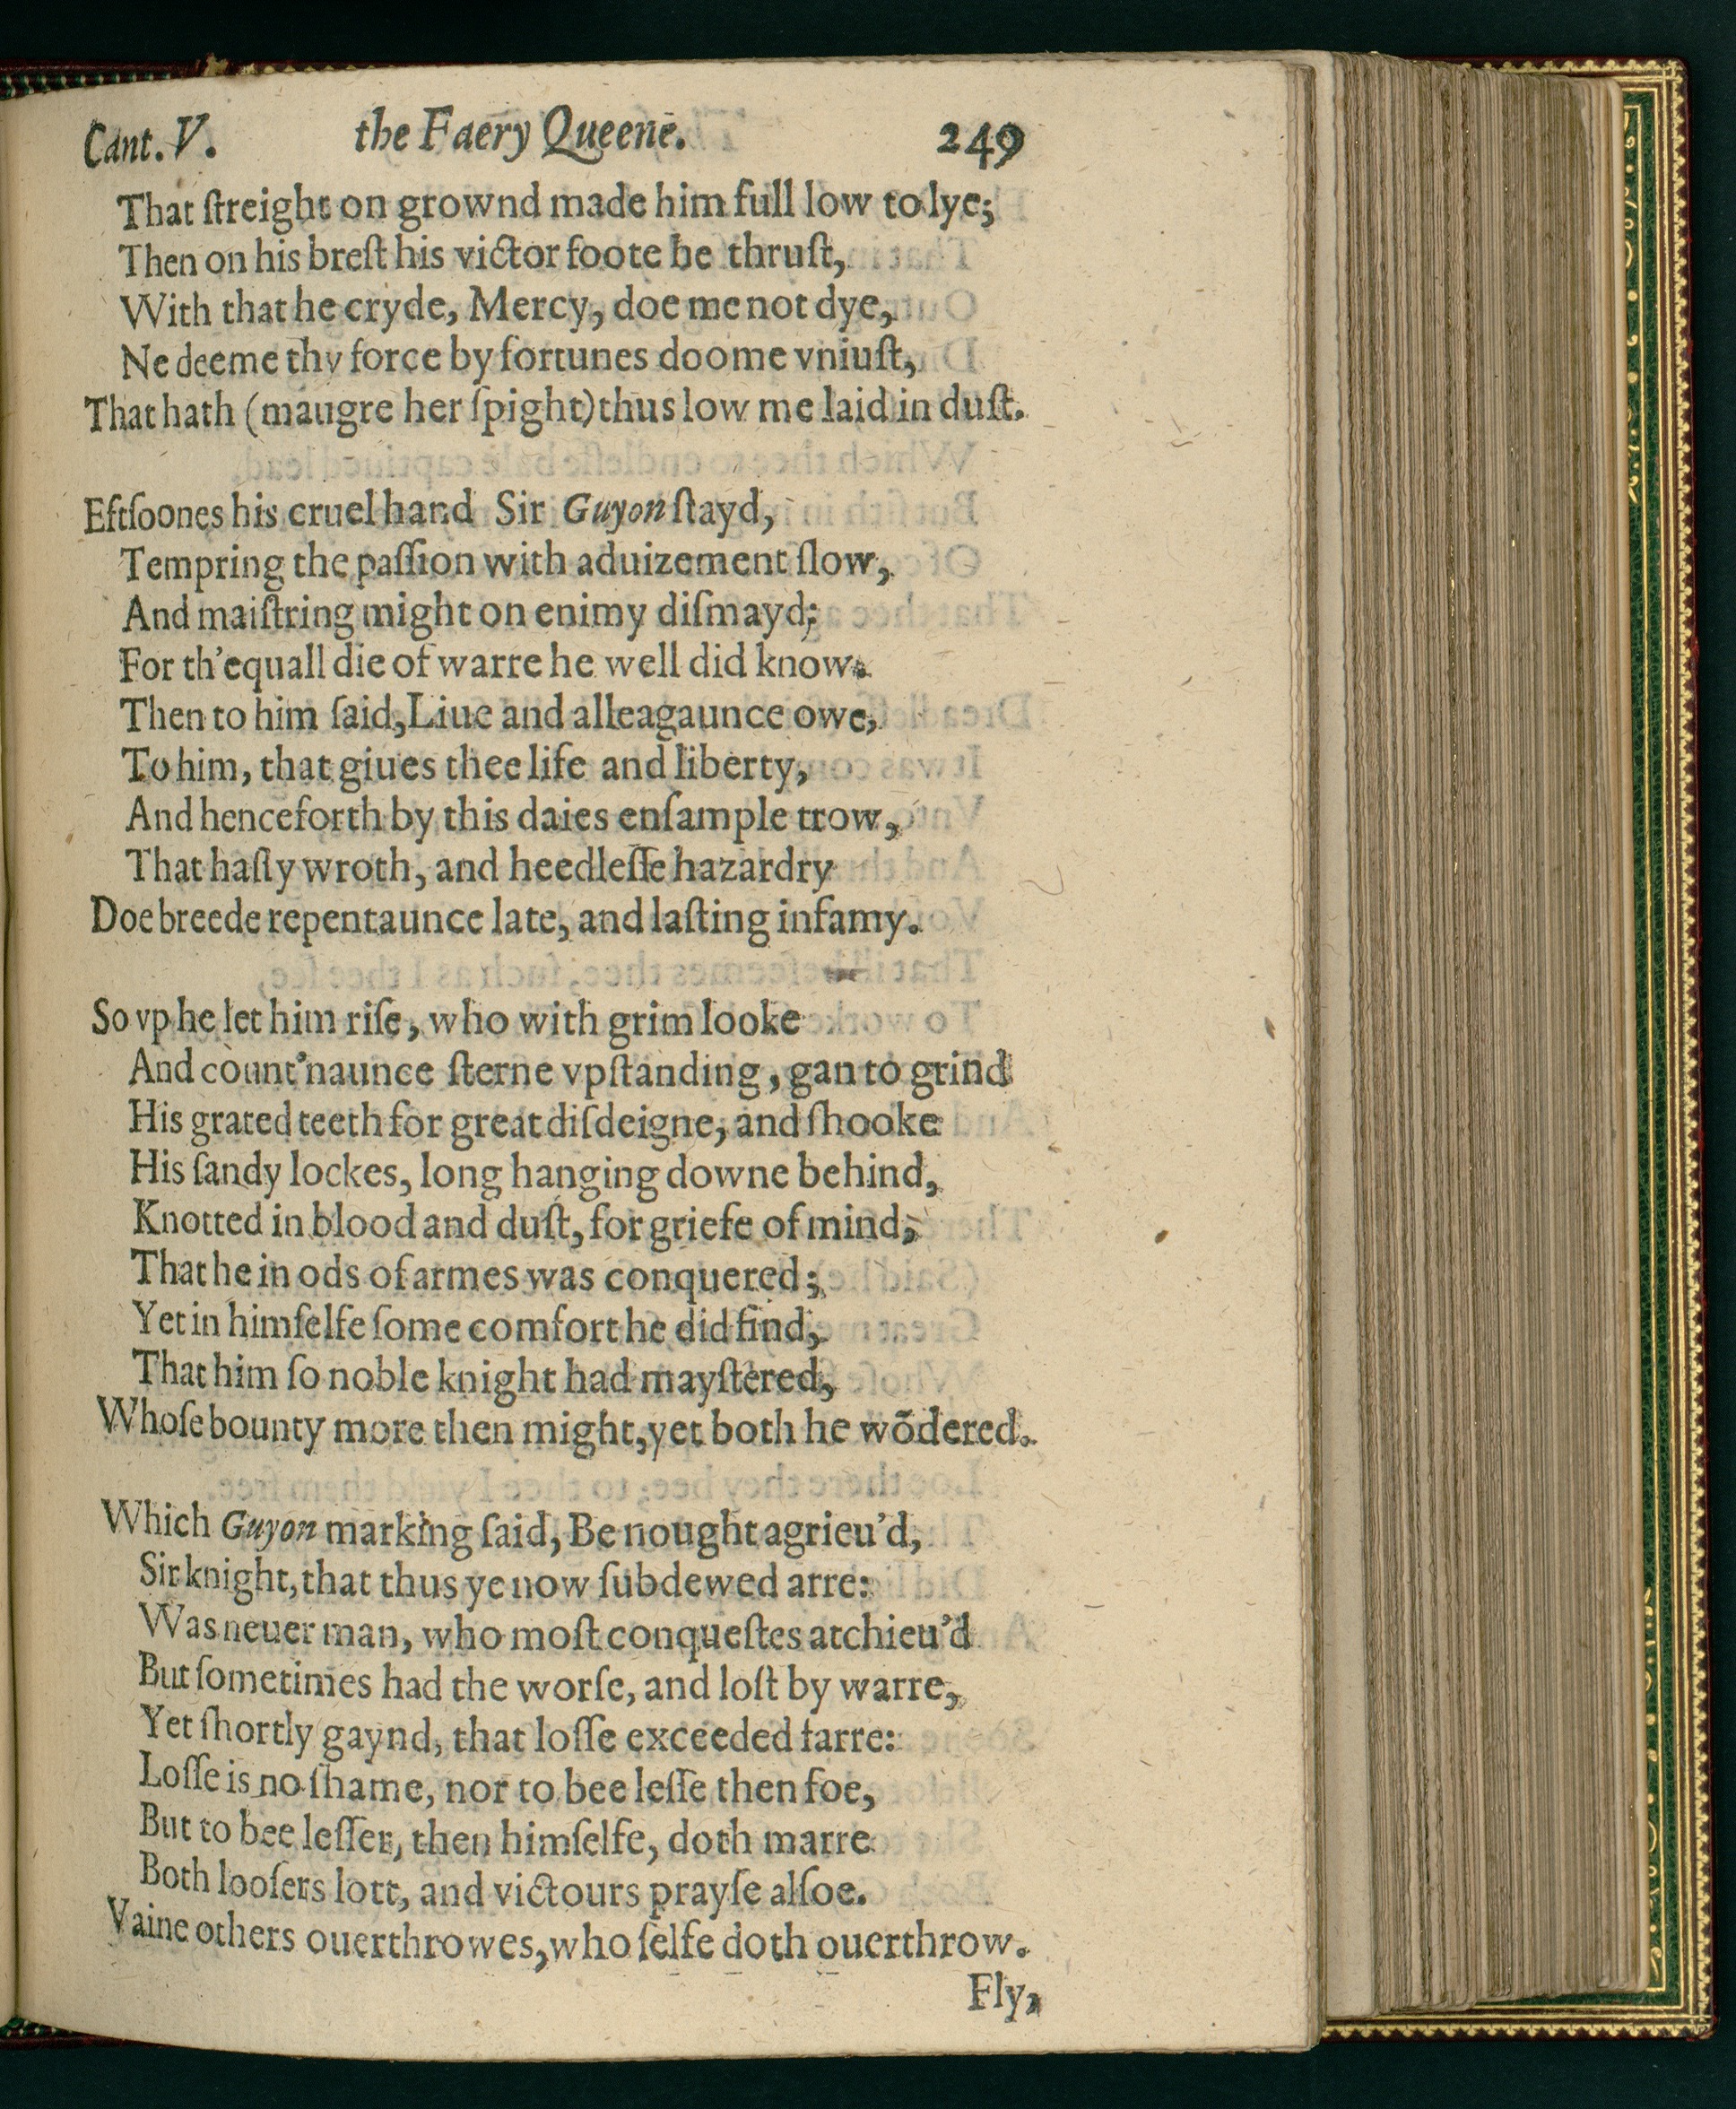 Cant. V. the Faery Queene. 249
That ſtreight on grownd made him full low to lye;
Then on his breſt his victor foote he thruſt,
With that he cryde, Mercy, doe me not dye,
Ne deeme thy force by fortunes doome vniuſt,
That hath (maugre her ſpight) thus low me laid in duſt.
Eftſoones his cruel hand Sir Guyon ſtayd,
Tempring the paſſion with aduizement ſlow,
And maiſtring might on enimy diſmayd;
For th'equall die of warre he well did know.
Then to him ſaid, Liue and alleagaunce owe,
To him, that giues thee life and liberty,
And henceforth by this daies enſample trow,
That haſty wroth, and heedleſſe hazardry
Doe breede repentaunce late, and laſting infamy.
So vp he let him riſe, who with grim looke
And count'naunce ſterne vpſtanding, gan to grind
His grated teeth for great diſdeigne, and ſhooke
His ſandy lockes, long hanging downe behind,
Knotted in blood and duſt, for griefe of mind,
That he in ods of armes was conquered;
Yet in himſelfe ſome comfort he did find,
That him ſo noble knight had mayſtered,
Whoſe bounty more then might, yet both he wõdered.
Which Guyon marking ſaid, Be nought agrieu'd,
Sir knight, that thus ye now ſubdewed arre:
Was neuer man, who moſt conqueſtes atchieu'd
But ſometimes had the worſe, and loſt by warre,
Yet ſhortly gaynd, that loſſe exceeded farre:
Loſſe is no ſhame, nor to bee leſſe then foe,
But to bee leſſer, then himſelfe, doth marre
Both looſers lott, and victours prayſe alſoe.
Vaine others ouerthrowes, who ſelfe doth ouerthrow.
Fly,